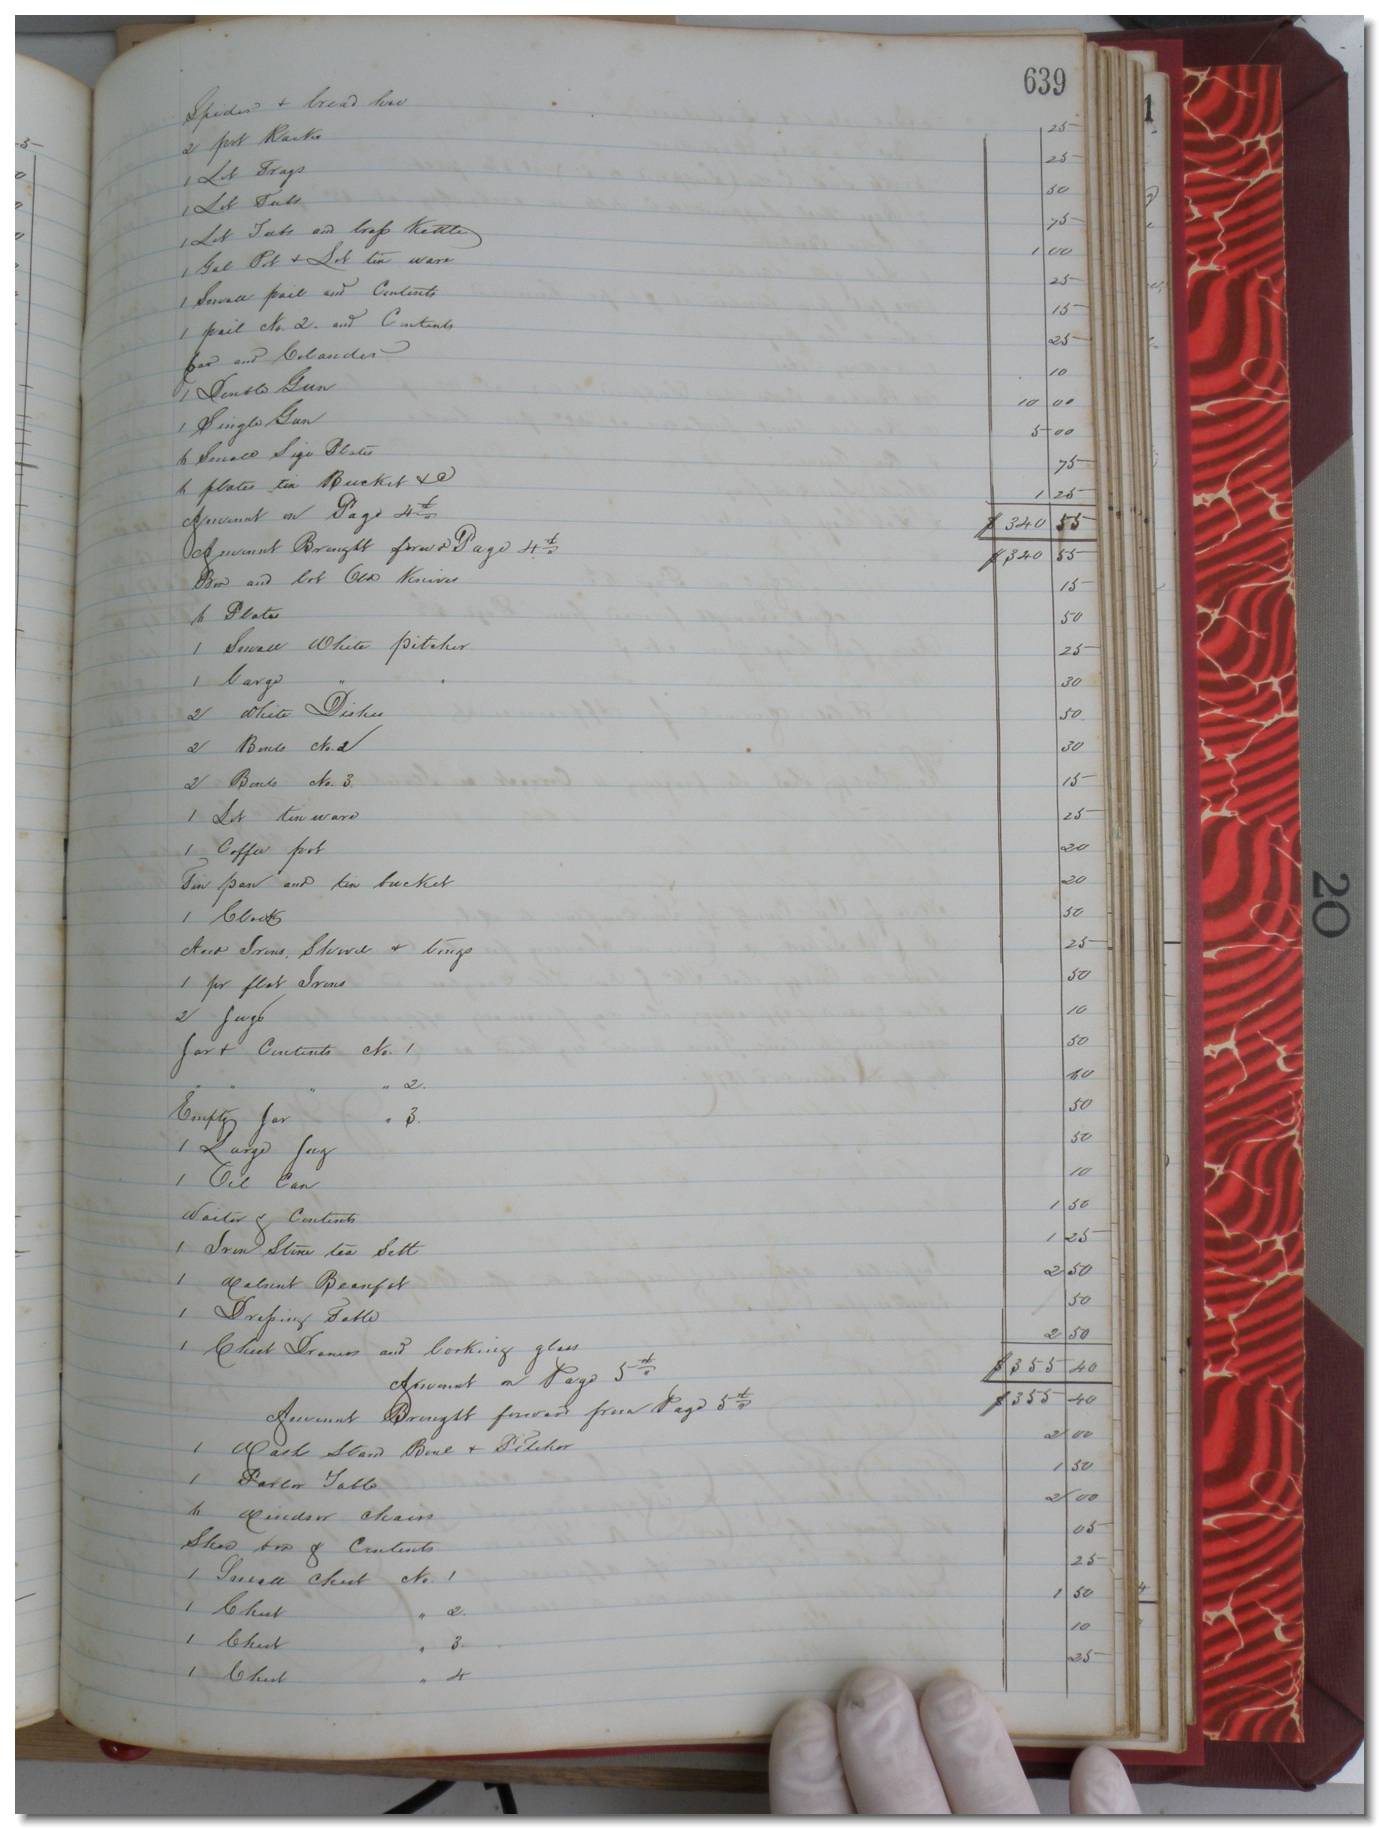 639
Spider & bread hoe 25
2 pot Racks 25
1 Lot Trays 50
1 Lot Tubs 75
1 Lot Tubs and brass Kettle 1 00
1 Gal Pot & Lot tin ware 25
1 Small pail and Contents 15
1 pail No. 2. and Contents 25
Jar and Colander 10
1 Double Gun 10 00
1 Single Gun 5 00
6 Small Size Plates 75
6 plates tin Bucket &C 1 25
Amount on Page 4th $340 55
Amount Brought forwd Page 4th $340 55
Box and lot Old Knives 15
6 Plates 50
1 Small White pitcher 25
1 large " " 30
2 White Dishes 50
2 Bowls No. 2 30
2 Bowls No. 3. 15
1 Lot tin ware 25
1 Coffee pot 20
Tin pan and tin bucket 20
1 Clock 50
And Irons, Shovel & tongs 25
1 pr flat Irons 50
2 Jugs 10
Jar & Contents No. 1 50
" " " " 2.
Empty Jar " 3. 50
1 Large Jug 50
1 Oil Can 10
Waiter & Contents 1 50
1 Iron Stone tea Sett 1 25
1 Walnut Beaufet 2 50
1 Dressing Table 50
1 Chest Drawers and looking glass 2 50
Amount on Page 5th $355 40
Amount Brought forward from Page 5th $355 40
1 Wash Stand Bowl & Pitcher 2 00
1 Parlor Table 1 50
6 Windsor chairs 2 00
Shoe box & Contents 05
1 Small Chest No. 1 25
1 Chest " 2. 1 50
1 Chest " 3. 10
1 Chest " 4 25
1
20